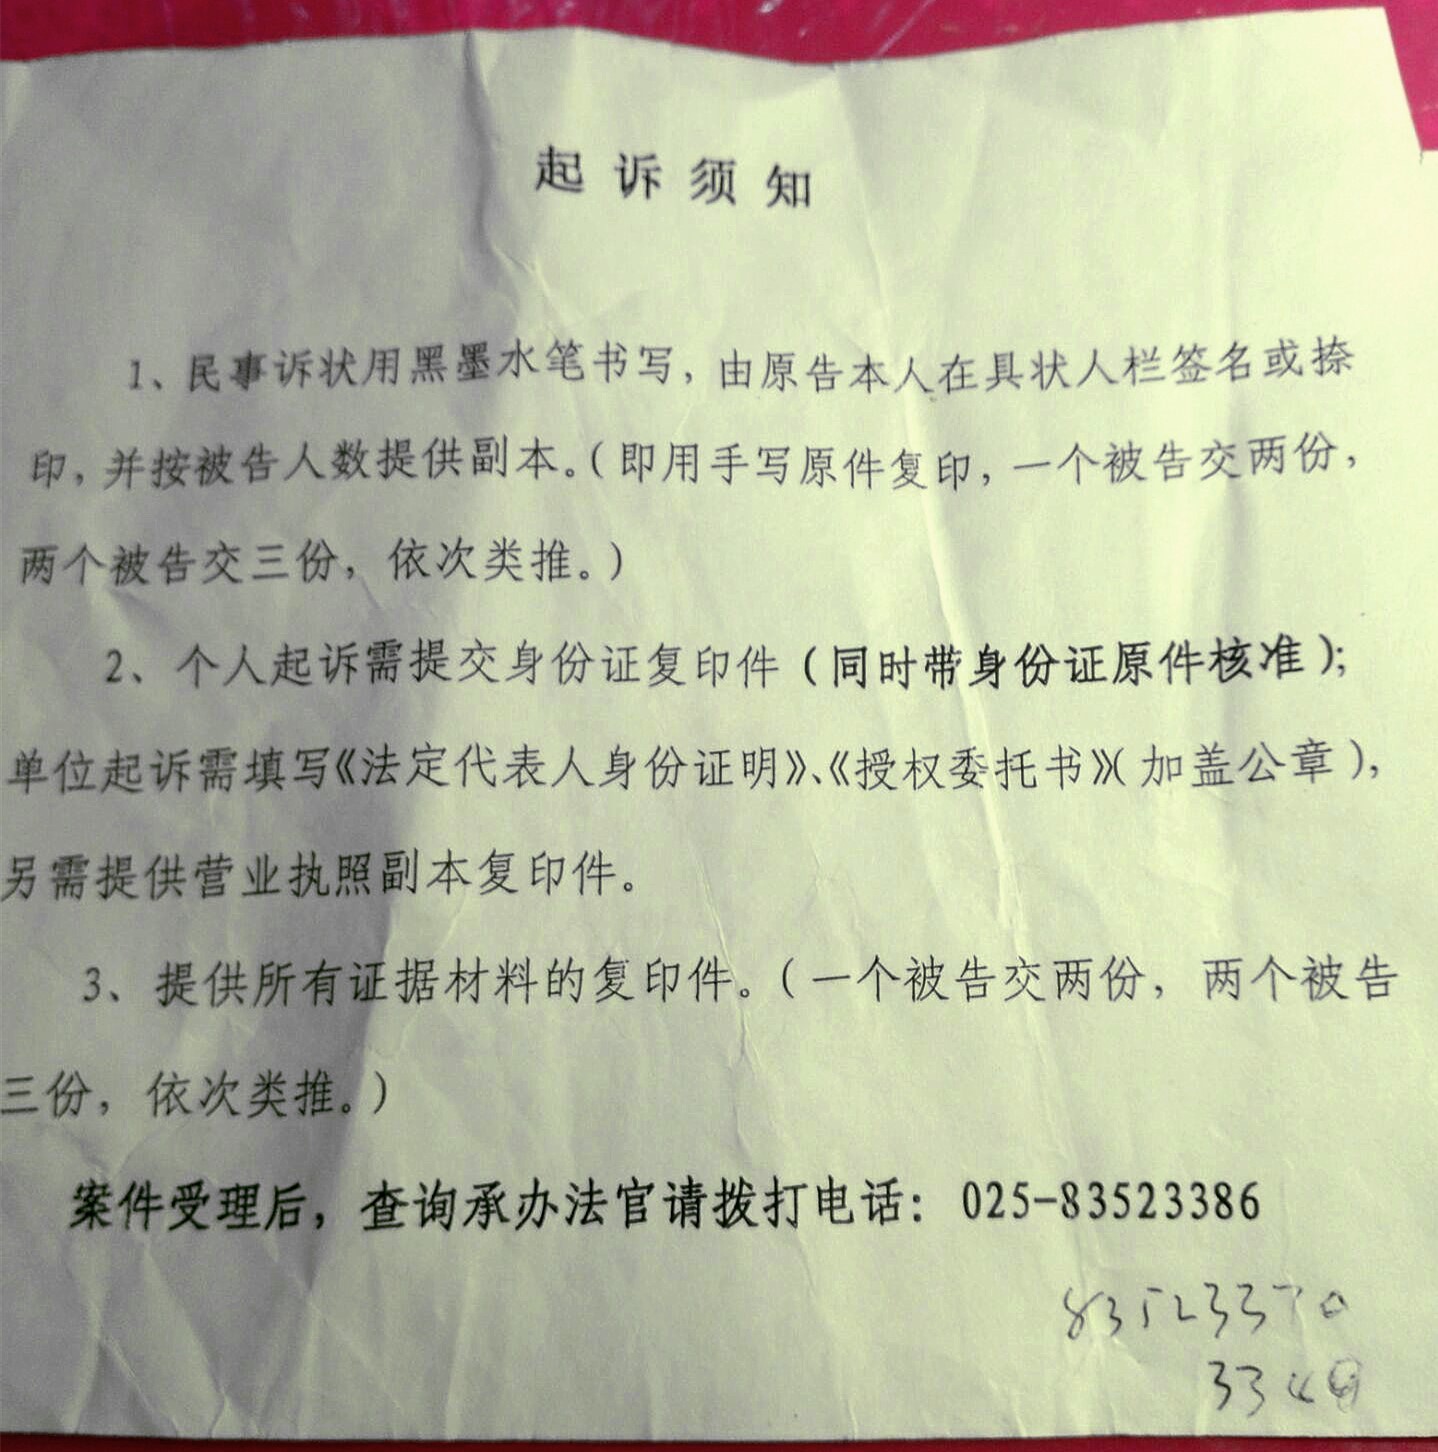 起诉须知
1、民事诉状用黑墨水笔书写，由原告本人在具状人栏签名或捺
印，并按被告人数提供副本。（即用手写原件复印，一个被告交两份，
两个被告交三份，依次类推。）
2、个人起诉需提交身份证复印件（同时带身份证原件核准）；
单位起诉需填写《法定代表人身份证明》、《授权委托书》（加盖公章），
另需提供营业执照副本复印件。
3、提供所有证据材料的复印件。（一个被告交两份，两个被告
三份，依次类推。）
案件受理后，查询承办法官请拨打电话：025-83523386
83523370